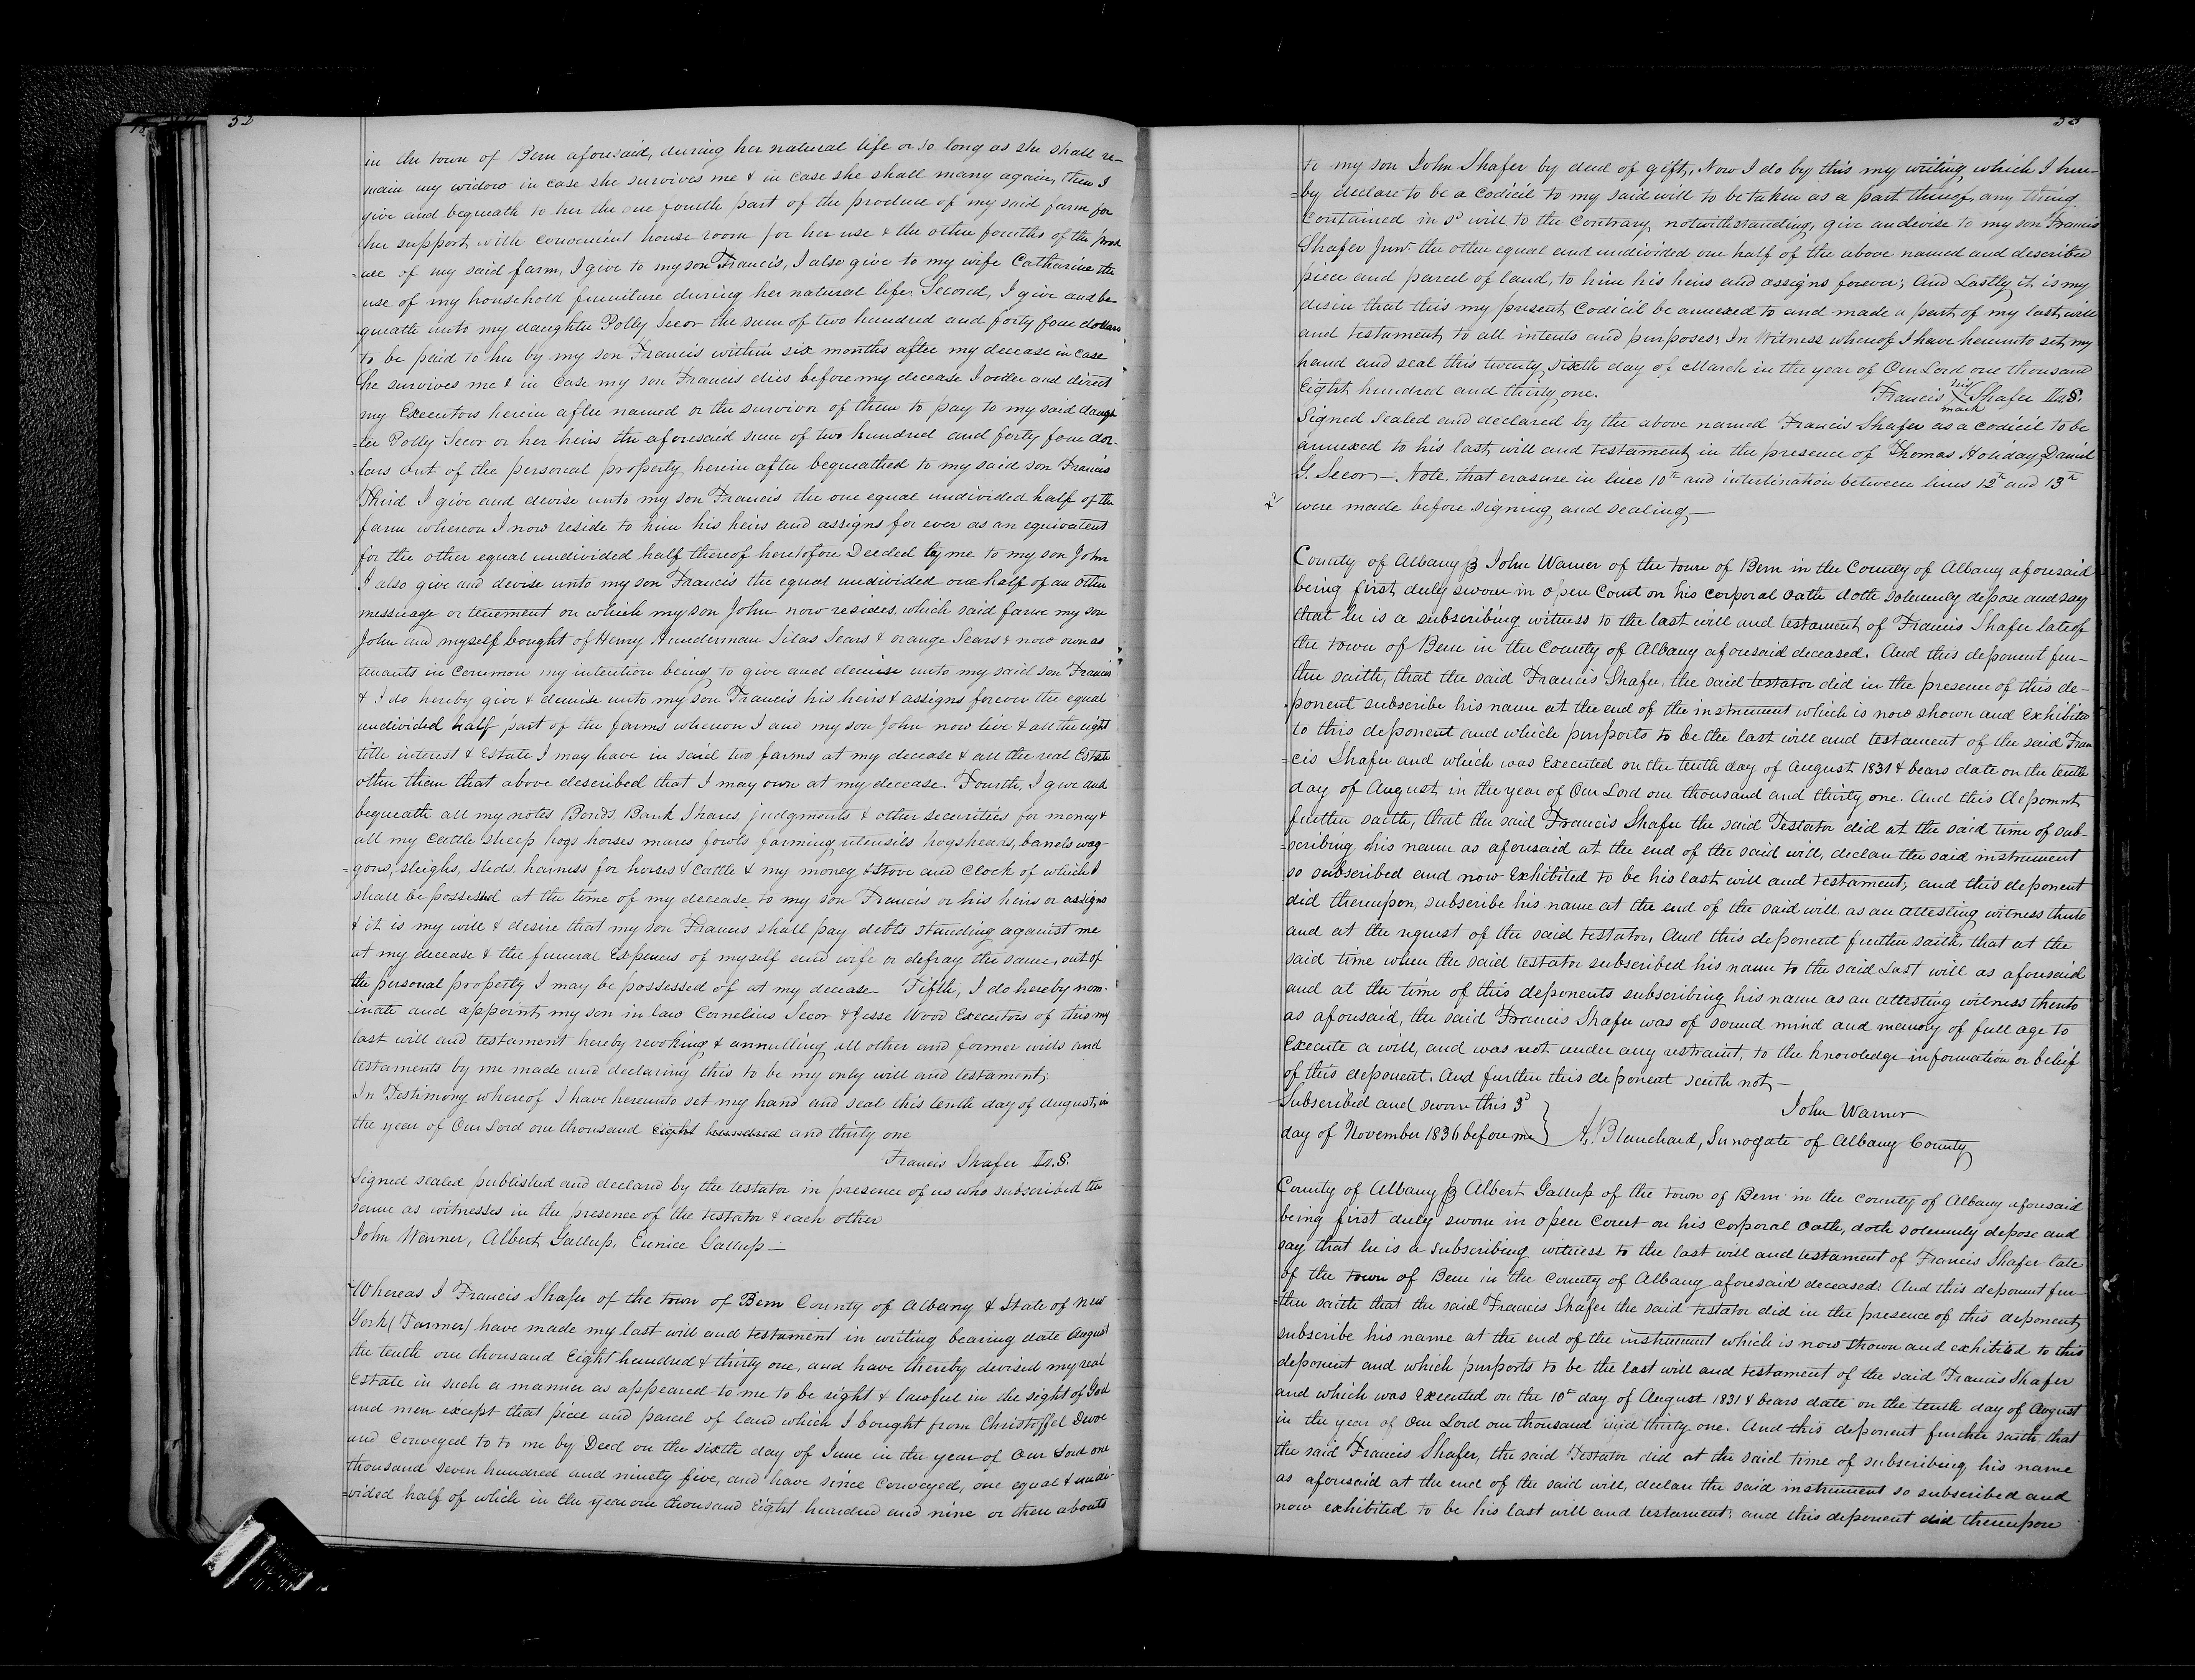 52
in the town of Bern aforesaid, during her natural life or so long as she shall re-
main my widow in case she survives me & in case she shall marry again, then I
give and bequeath to her the one fourth part of the produce of my said farm for
her support with convenient house room for her use & the other fourths of the prod
uce of my said farm, I give to my son Francis, I also give to my wife Catharine the
use of my household furniture during her natural life, Second, I give and be
queath unto my daughter Polly Secor the sum of two hundred and forty four dollars
to be paid to her by my son Francis within six months after my decease in case
he survives me & in case my son Francis dies before my decease I order and direct
my Executors herein after named or the survivor of them to pay to my said daugh
=ter Polly Secor or her heirs the aforesaid sum of two hundred and forty four dol-
=lars out of the personal property herein after bequeathed to my said son Francis
Third I give and devise unto my son Francis the one equal undivided half of the
farm whereon I now reside to him his heirs and assigns for ever as an equivalent
for the other equal undivided half thereof heretofore Deeded by me to my son John
I also give and devise unto my son Francis the equal undivided one half of an other
messuage or tenement on which my son John now resides, which said farm my son
John and myself bought of Henry Hunderman Silas Sears & orange Sears & now own as
tenants in common my intention being to give and demise unto my said son Francis
& I do hereby give & demise unto my son Francis his heirs & assigns forever the equal
undivided half part of the farms whereon I and my son John now live & all the right
title interest & Estate I may have in said two farms at my decease & all the real Estate
other them that above described that I may own at my decease. Fourth, I give and
bequeath all my notes Bonds Bank Shares, judgments & other securities for money &
all my cattle sheep hogs horses mares fowls farming utensils hogsheads, barrels wag-
=gons, sleighs, sleds, harness for horses & cattle & my money & stove and clock of which I
shall be possessed at the time of my decease, to my son Francis or his heirs or assigns
& it is my will & desire that my son Francis shall pay debts standing against me
at my decease & the funeral Expences of myself and wife or defray the same, out of
the personal property I may be possessed of at my decease Fifth, I do hereby nom-
inate and appoint my son in law Cornelius Secor & Jesse Wood Executors of this my
last will and testament hereby revoking & annulling all other and former wills and
testaments by me made and declaring this to be my only will and testament;
In Testimony whereof I have hereunto set my hand and seal this tenth day of August, in
the year of Our Lord one thousand eight hundred and thirty one
Francis Shafer L.S.
Signed sealed published and declared by the testator in presence of us who subscribed the
same as witnesses in the presence of the testator & each other
John Warner, Albert Gallup, Eunice Gallup—
Whereas I Francis Shafer of the town of Bern County of Albany & State of New
York (Farmer) have made my last will and testament in writing bearing date August
the tenth one thousand Eight hundred & thirty one, and have thereby devised my real
Estate in such a manner as appeared to me to be right & lawful in the sight of God
and men except that piece and parcel of land which I bought from Christoffel Devoe
and Conveyed to to me by Deed on the sixth day of June in the year of Our Lord one
thousand seven hundred and ninety five, and have since Conveyed, one equal & undi-
=vided half of which in the year one thousand Eight hundred and nine or then abouts
53
to my son John Shafer by deed of gift, Now I do by this my writing which I here-
=by declare to be a Codicil to my said will to be taken as a part thereof, any thing
Contained in sd will to the Contrary notwithstanding, give and devise to my son Francis
Shafer Junr. the other equal and undivided one half of the above named and described
piece and parcel of land, to him his heirs and assigns forever; And Lastly it is my
desire that this my present Codicil be annexed to and made a part of my last will
and testament to all intents and purposes; In Witness whereof I have hereunto set my
hand and seal this twenty sixth day of March in the year of Our Lord one thousand
Eight hundred and thirty one.
Francis his X mark Shafer L.S.
Signed Sealed and declared by the above named Francis Shafer as a codicil to be
annexed to his last will and testament in the presence of Thomas Holiday, Daniel
G. Secor,— Note, that erasure in line 10th and interlination between lines 12th and 13th
were made before signing and sealing—
County of Albany ss John Warner of the town of Bern in the County of Albany aforesaid
being first duly sworn in open Court on his corporal oath doth solemnly depose and say
that he is a subscribing witness to the last will and testament of Francis Shafer late of
the town of Bern in the County of Albany aforesaid deceased. And this deponent fur-
ther saith, that the said Francis Shafer, the said testator did in the presence of this de-
ponent subscribe his name at the end of the instrument which is now shown and Exhibited
to this deponent and which purports to be the last will and testament of the said Fran
=cis Shafer and which was Executed on the tenth day of August 1831 & bears date on the tenth
day of August, in the year of Our Lord one thousand and thirty one. And this deponent
further saith, that the said Francis Shafer the said Testator did at the said time of sub-
=scribing his name as aforesaid at the end of the said will, declare the said instrument
so subscribed and now Exhibited to be his last will and testament; and this deponent
did thereupon, subscribe his name at the end of the said will, as an attesting witness thereto
and at the request of the said testator, And this deponent further saith, that at the
said time when the said testator subscribed his name to the said last will as aforesaid
and at the time of this deponents subscribing his name as an attesting witness thereto
as aforesaid, the said Francis Shafer was of sound mind and memory of full age to
Execute a will, and was not under any restraint, to the knowledge information or belief
of this deponent. And further this deponent saith not,—
Subscribed and sworn this 3d John Warner
day of November 1836 before me} A. Blanchard, Surrogate of Albany County
County of Albany ss Albert Gallup of the town of Bern in the county of Albany aforesaid
being first duly sworn in open Court on his corporal oath, doth solemnly depose and
say that he is a subscribing witness to the last will and testament of Francis Shafer late
of the town of Bern in the county of Albany aforesaid deceased. And this deponent fur-
=ther saith that the said Francis Shafer the said testator did in the presence of this deponent
subscribe his name at the end of the instrument which is now shown and exhibited to this
deponent and which purports to be the last will and testament of the said Francis Shafer
and which was Executed on the 10th day of August 1831 & bears date on the tenth day of August
in the year of Our Lord one thousand and thirty one. And this deponent further saith, that
the said Francis Shafer, the said Testator did at the said time of subscribing his name
as aforesaid at the end of the said will, declare the said instrument so subscribed and
now exhibited to be his last will and testament; and this deponent did thereupon